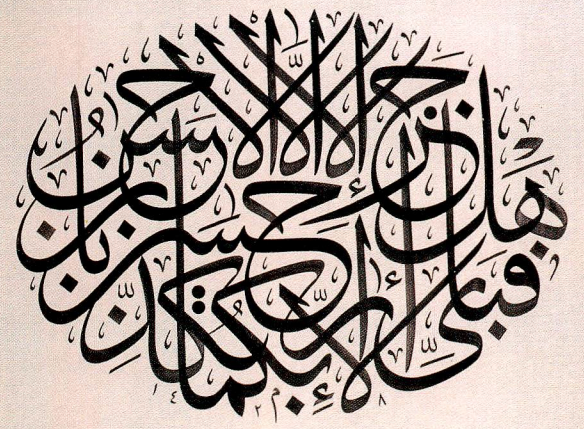 هل جزاء الإحسان إلا الإحسان فبأي آلاء ربكما تكذبان